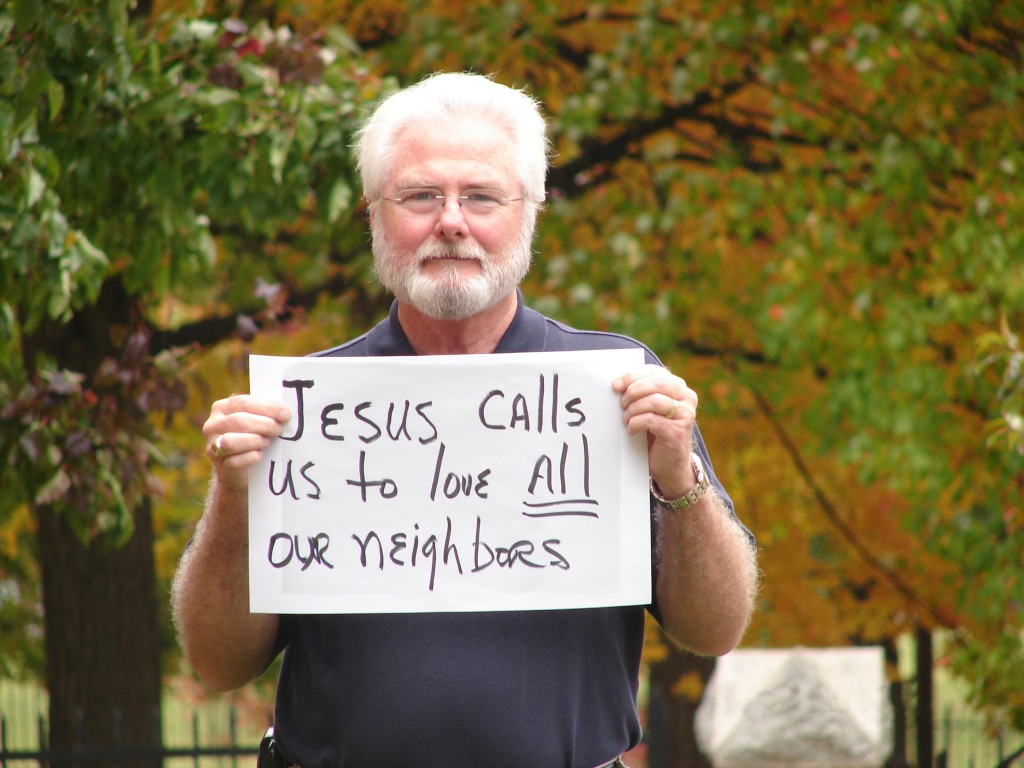 JESUS CALLS
US to love All
OUR neighbors